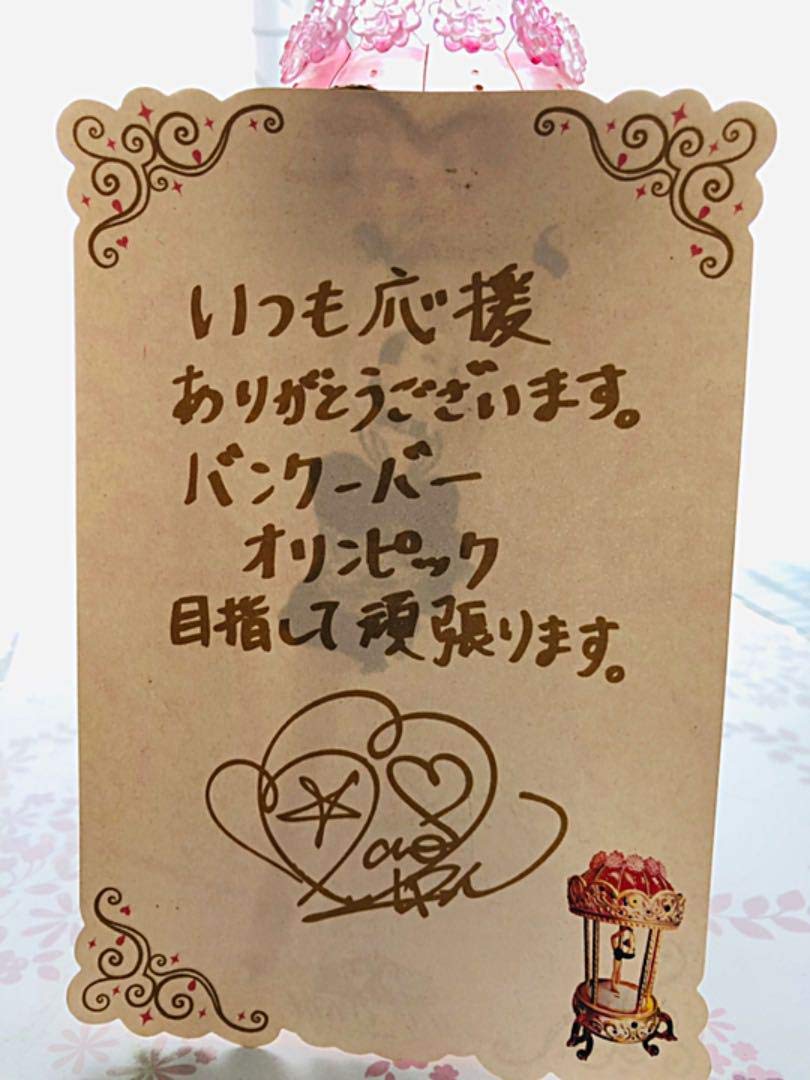 いつも応援
ありがとうございます。
バンクーバー
オリンピック
目指して頑張ります。